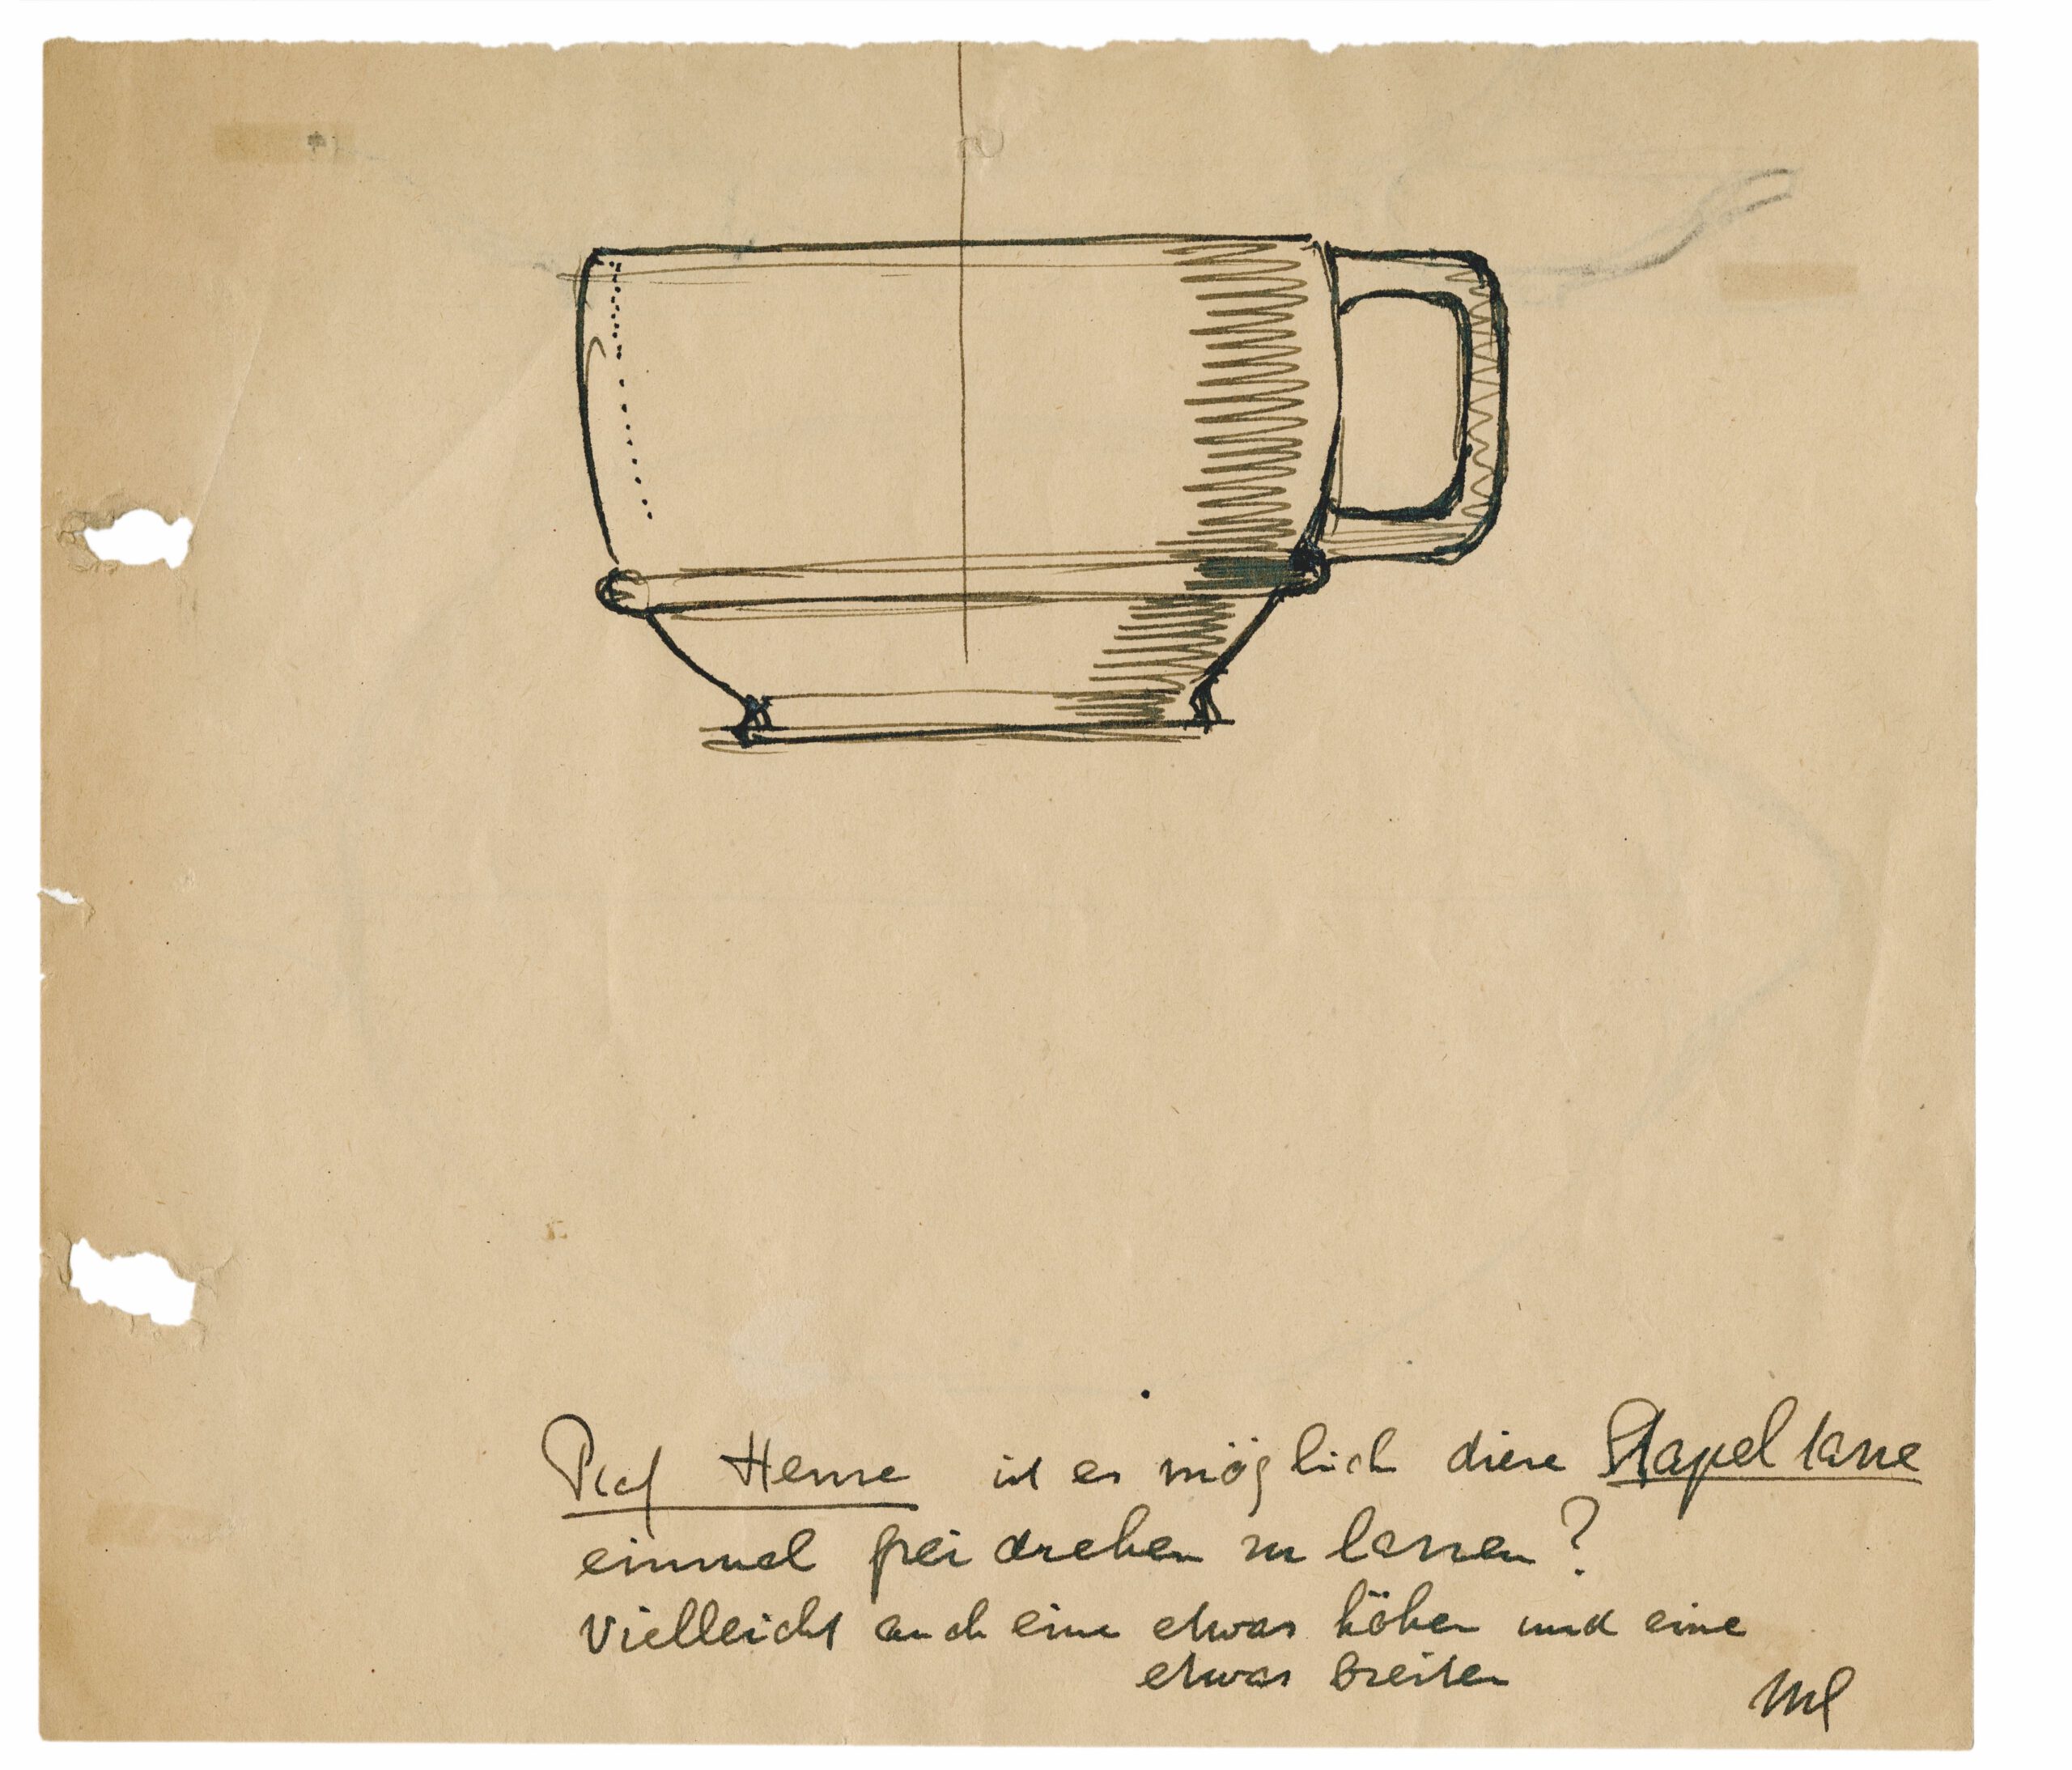 Prof Hense ist es möglich diese Stapeltasse
einmal frei drehen zu lassen?
Vielleicht auch eine etwas höher und eine
etwas breiter